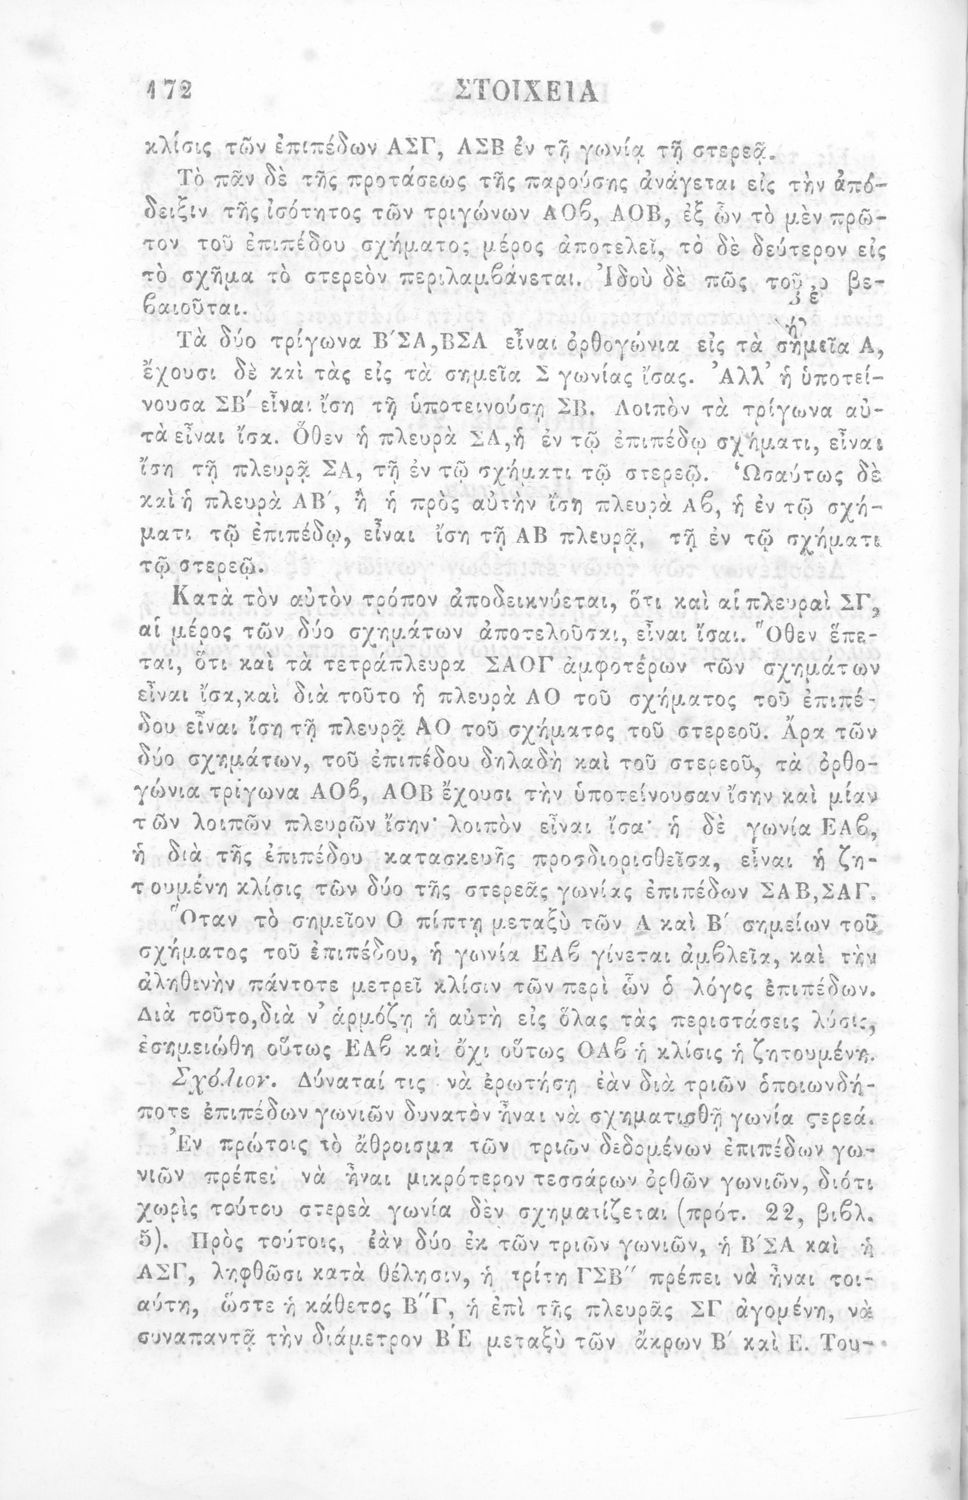 172 ΣΤΟΙΧΕΙΑ
κλίσις τῶν ἐπιπέδων ΑΣΓ, ΑΣΒ ἐν τῇ γωνίᾳ τῇ στερεᾷ.
Τὸ πᾶν δὲ τῆς προτάσεως τῆς παρούσης ἀνάγεται εἰς τὴν ἀπό-
δειξιν τῆς ἰσότητος τῶν τριγώνων ΑΟϐ, ΑΟΒ, ἐξ ὧν τὸ μὲν πρῶ-
τον τοῦ ἐπιπέδου σχήματος μέρος ἀποτελεῖ, τὸ δὲ δεύτερον εἰς
τὸ σχῆμα τὸ στερεὸν περιλαμϐάνεται. Ἰδοὺ δὲ πῶς βε-
ϐαιοῦται.
Τὰ δύο τρίγωνα Β΄ΣΑ,ΒΣΑ εἶναι ὀρθογώνια εἰς τὰ σημεῖα Α,
ἔχουσι δὲ καὶ τὰς εἰς τὰ σημεῖα Σ γωνίας ἴσας. Ἀλλ' ἡ ὑποτεί-
νουσα ΣΒ΄ εἶναι ἴση τῇ ὑποτεινούσῃ ΣΒ. Λοιπὸν τὰ τρίγωνα αὐ-
τὰ εἶναι ἴσα. Ὅθεν ἡ πλευρὰ ΣΑ,ἡ ἐν τῷ ἐπιπέδῳ σχήματι, εἶναι
ἴση τῇ πλευρᾷ ΣΑ, τῇ ἐν τῷ σχήματι τῷ στερεῷ. Ὡσαύτως δὲ
καὶ ἡ πλευρὰ ΑΒ΄, ἢ ἡ πρὸς αὐτὴν ἴση πλευρὰ Αϐ, ἡ ἐν τῷ σχή-
ματι τῷ ἐπιπέδῳ, εἶναι ἴση τῇ ΑΒ πλευρᾷ, τῇ ἐν τῷ σχήματι
τῷ στερεῷ.
Κατὰ τὸν αὐτὸν τρόπον ἀποδεικνύεται, ὅτι καὶ αἱ πλευραὶ ΣΓ,
αἱ μέρος τῶν δύο σχημάτων ἀποτελοῦσαι, εἶναι ἴσαι. Ὅθεν ἕπε-
ται, ὅτι καὶ τὰ τετράπλευρα ΣΑΟΓ ἀμφοτέρων τῶν σχημάτων
εἶναι ἴσα,καὶ διὰ τοῦτο ἡ πλευρὰ ΑΟ τοῦ σχήματος τοῦ ἐπιπέ-
δου εἶναι ἴση τῇ πλευρᾷ ΑΟ τοῦ σχήματος τοῦ στερεοῦ. Ἄρα τῶν
δύο σχημάτων, τοῦ ἐπιπέδου δηλαδὴ καὶ τοῦ στερεοῦ, τὰ ὀρθο-
γώνια τρίγωνα ΑΟϐ, ΑΟΒ ἔχουσι τὴν ὑποτείνουσαν ἴσην καὶ μίαν
τῶν λοιπῶν πλευρῶν ἴσην· λοιπὸν εἶναι ἴσα· ἡ δὲ γωνία ΕΑϐ,
ἡ διὰ τῆς ἐπιπέδου κατασκευῆς προσδιορισθεῖσα, εἶναι ἡ ζη-
τουμένη κλίσις τῶν δύο τῆς στερεᾶς γωνίας ἐπιπέδων ΣΑΒ,ΣΑΓ.
Ὅταν τὸ σημεῖον Ο πίπτῃ μεταξὺ τῶν Α καὶ Β΄ σημείων τοῦ
σχήματος τοῦ ἐπιπέδου, ἡ γωνία ΕΑϐ γίνεται ἀμϐλεῖα, καὶ τὴν
ἀληθινὴν πάντοτε μετρεῖ κλίσιν τῶν περὶ ὧν ὁ λόγος ἐπιπέδων.
Διὰ τοῦτο,διὰ ν' ἁρμόζῃ ἡ αὐτὴ εἰς ὅλας τὰς περιστάσεις λύσις,
ἐσημειώθη οὕτως ΕΑϐ καὶ ὄχι οὕτως ΟΑϐ ἡ κλίσις ἡ ζητουμένη.
Σχόλιον. Δύναταί τις νὰ ἐρωτήσῃ ἐὰν διὰ τριῶν ὁποιωνδή-
ποτε ἐπιπέδων γωνιῶν δυνατὸν ἦναι νὰ σχηματισθῇ γωνία ϛερεά.
Ἐν πρώτοις τὸ ἄθροισμα τῶν τριῶν δεδομένων ἐπιπέδων γω-
νιῶν πρέπει νὰ ἦναι μικρότερον τεσσάρων ὀρθῶν γωνιῶν, διότι
χωρὶς τούτου στερεὰ γωνία δὲν σχηματίζεται (πρότ. 22, βιϐλ.
5). Πρὸς τούτοις, ἐὰν δύο ἐκ τῶν τριῶν γωνιῶν, ἡ Β΄ΣΑ καὶ ἡ
ΑΣΓ, ληφθῶσι κατὰ θέλησιν, ἡ τρίτη ΓΣΒ΄΄ πρέπει νὰ ἦναι τοι-
αύτη, ὥστε ἡ κάθετος Β΄΄Γ, ἡ ἐπὶ τῆς πλευρᾶς ΣΓ ἀγομένη, νὰ
συναπαντᾷ τὴν διάμετρον Β΄Ε μεταξὺ τῶν ἄκρων Β΄ καὶ Ε. Του-